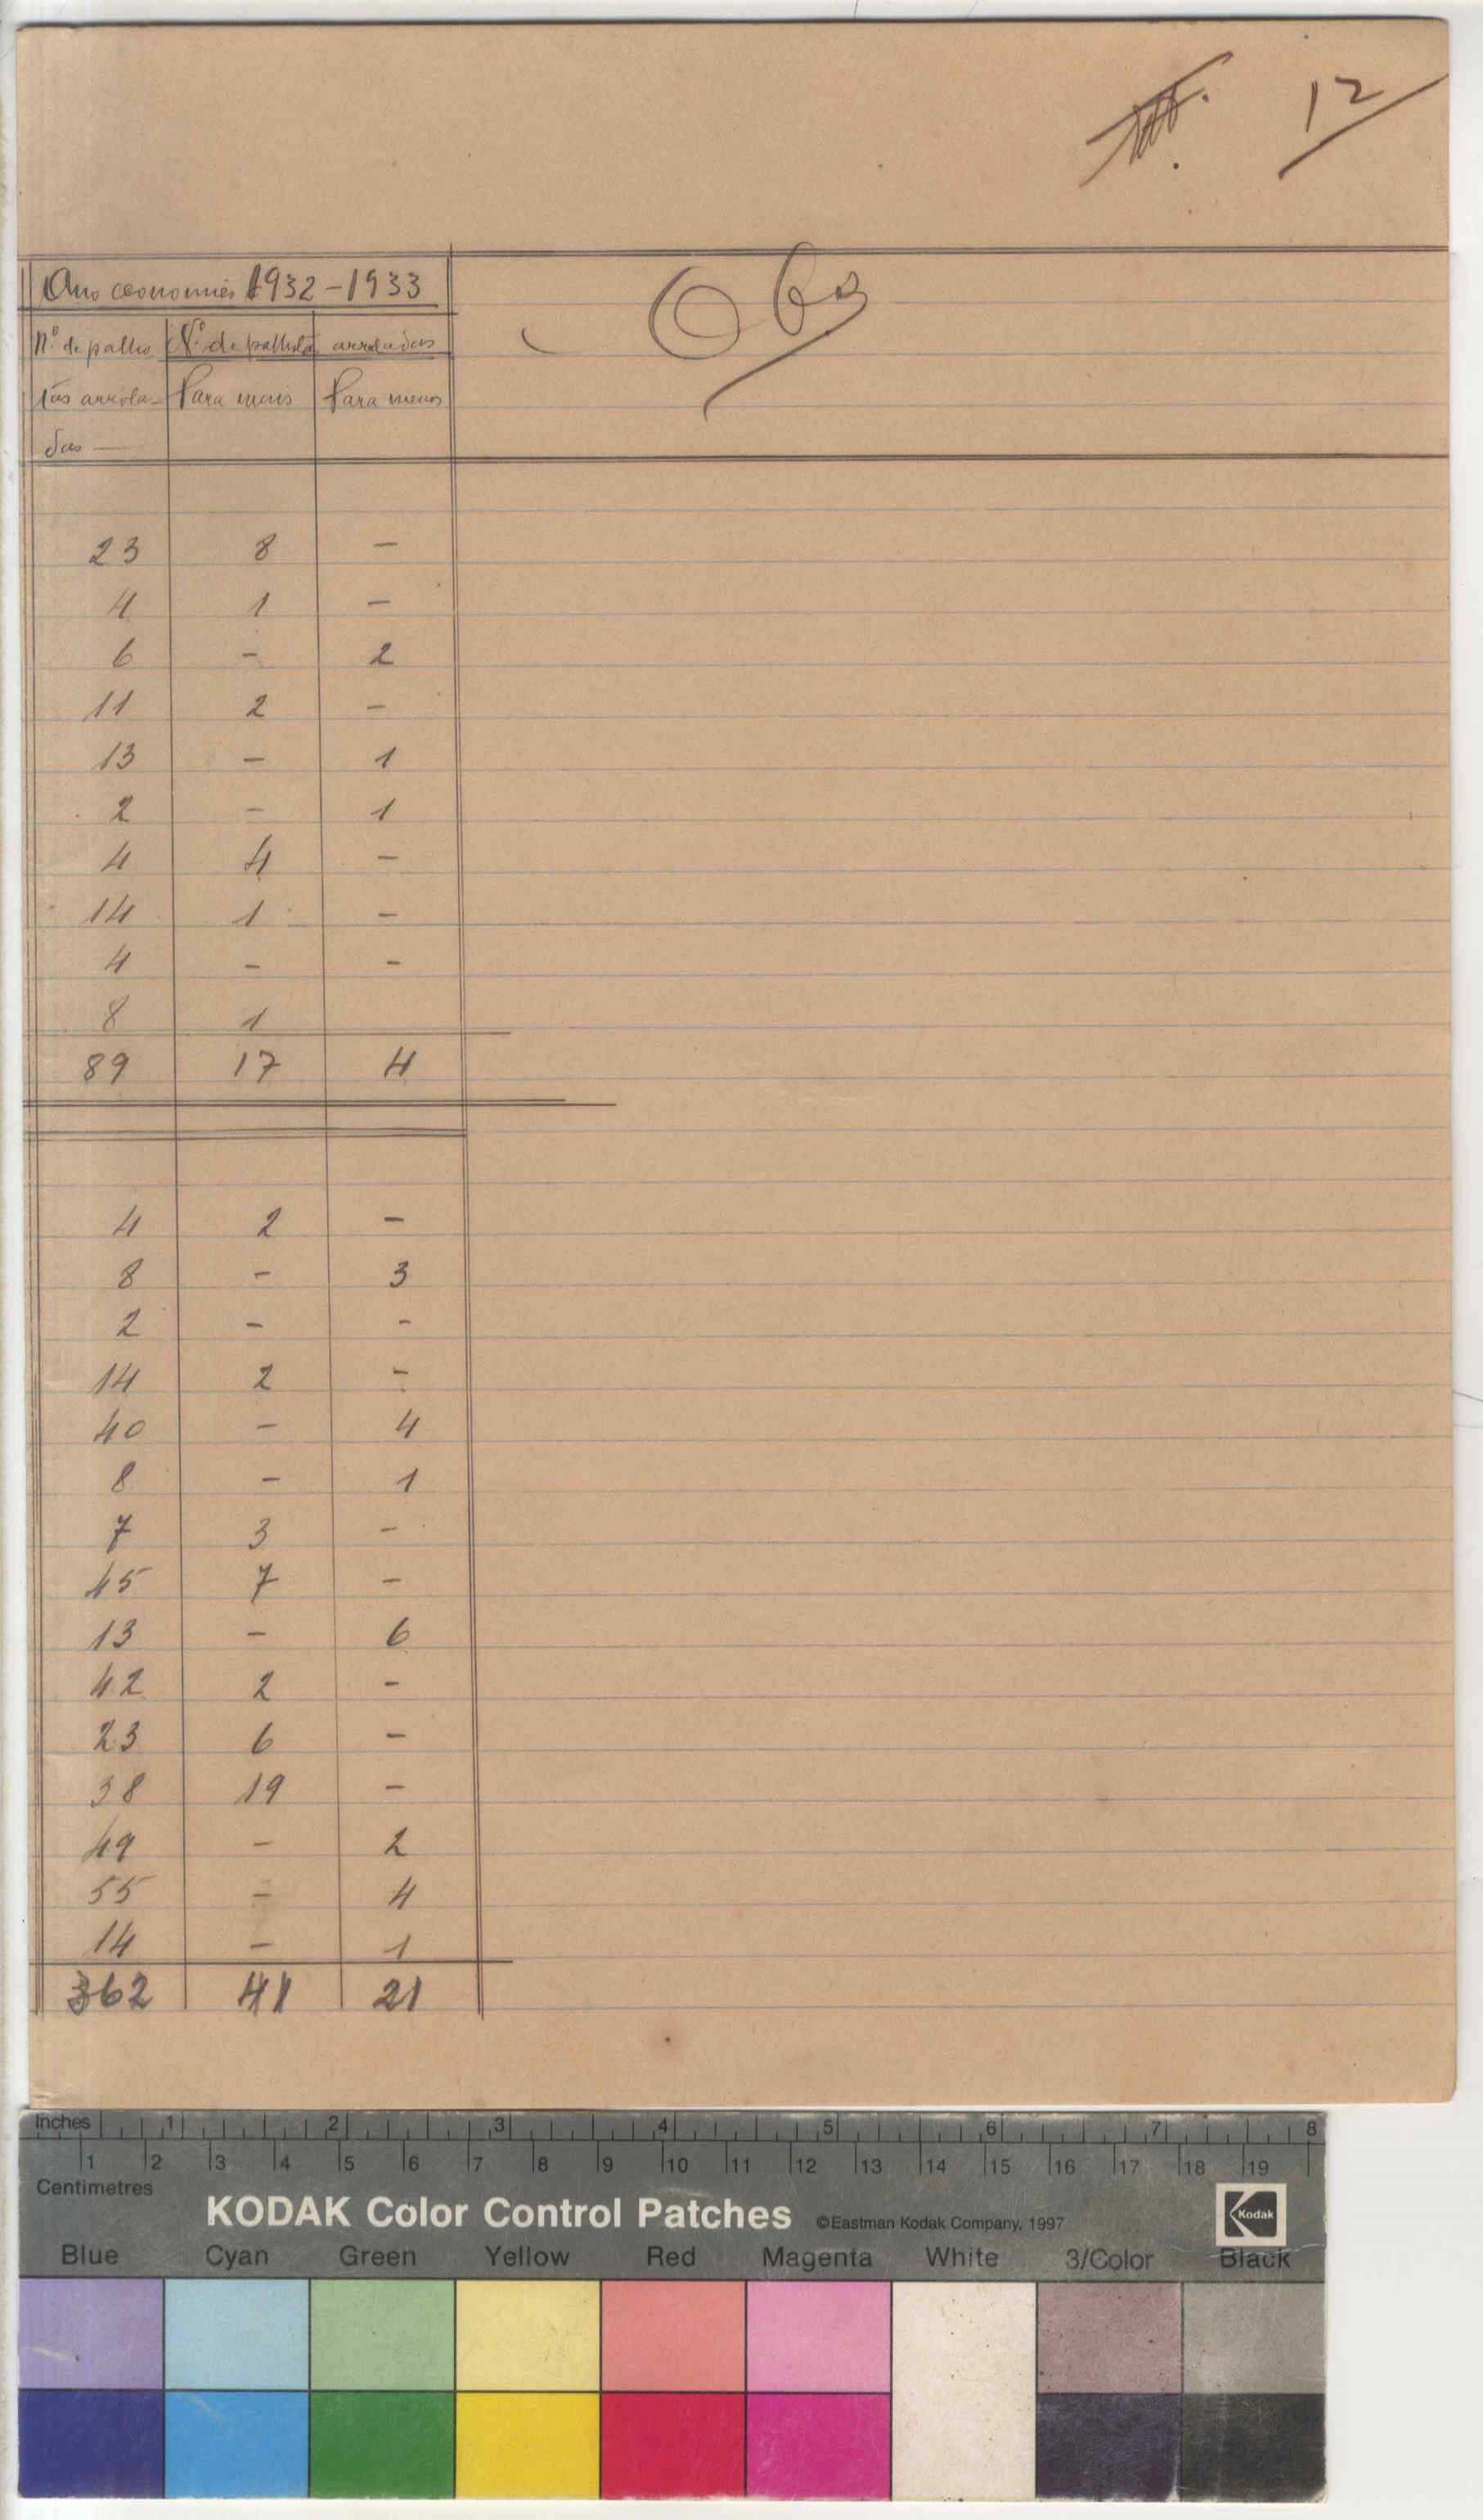 12
Ano economico 1932-1933
Obs
Nº de palho N.º de palhotas arroladas
tas arrola- Para mais Para menos
das —
23 8 -
4 1 -
6 - 2
11 2 -
13 - 1
2 - 1
4 4 -
14 1 -
4 - -
8 1
89 17 4
4 2 -
8 - 3
2 - -
14 2 -
40 - 4
8 - 1
7 3 -
45 7 -
13 - 6
42 2 -
23 6 -
38 19 -
49 - 2
55 - 4
14 - 1
362 41 21
Inches 1 2 3 4 5 6 7 8
1 2 3 4 5 6 7 8 9 10 11 12 13 14 15 16 17 18 19
Centimetres
KODAK Color Control Patches ©Eastman Kodak Company, 1997 Kodak
Blue Cyan Green Yellow Red Magenta White 3/Color Black